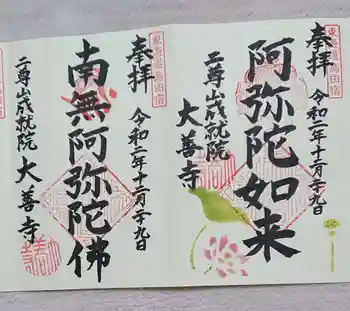 奉拝
令和二年十二月廿九日
阿弥陀如来
二尊山成就院
大善寺
奉拝
令和二年十二月廿九日
南無阿弥陀佛
二尊山成就院
大善寺